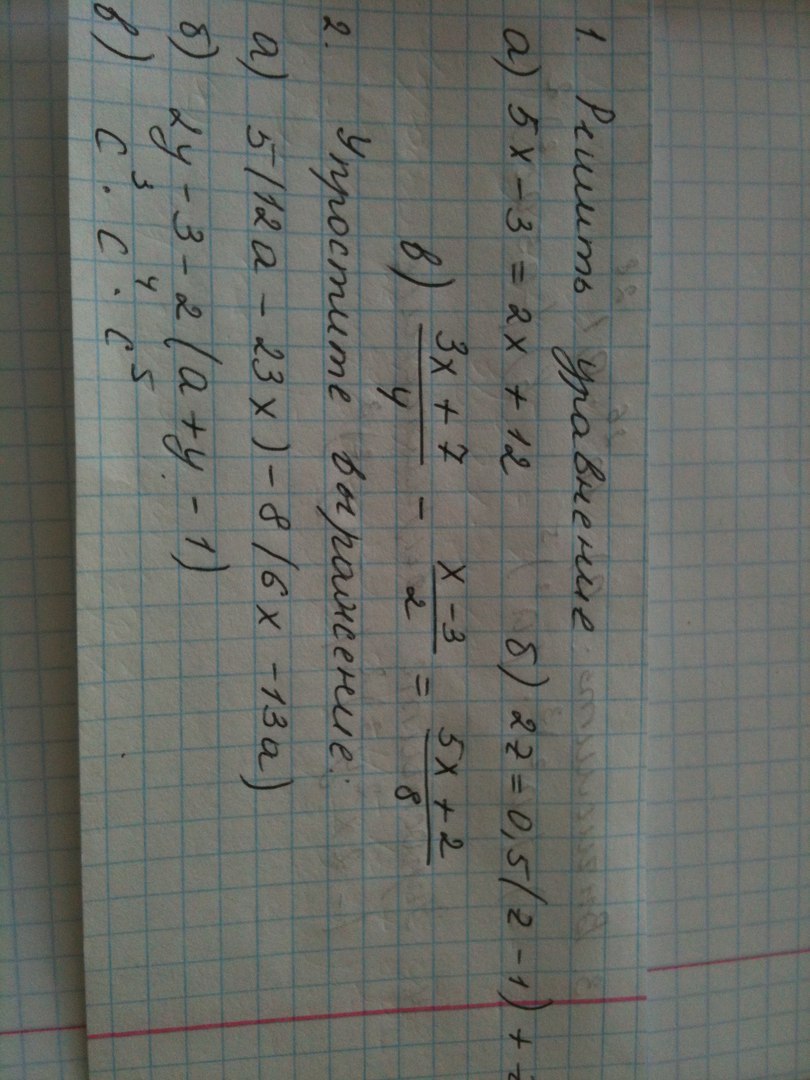 1. Решить уравнение.
а) 5x - 3 = 2x + 12 б) 2z = 0,5(z - 1) +
в) (3x + 7)/4 - (x - 3)/2 = (5x + 2)/8
2. Упростите выражение:
а) 5(12a - 23x) - 8(6x - 13a)
б) 2y - 3 - 2(a + y - 1)
в) c³ · c⁴ · c⁵